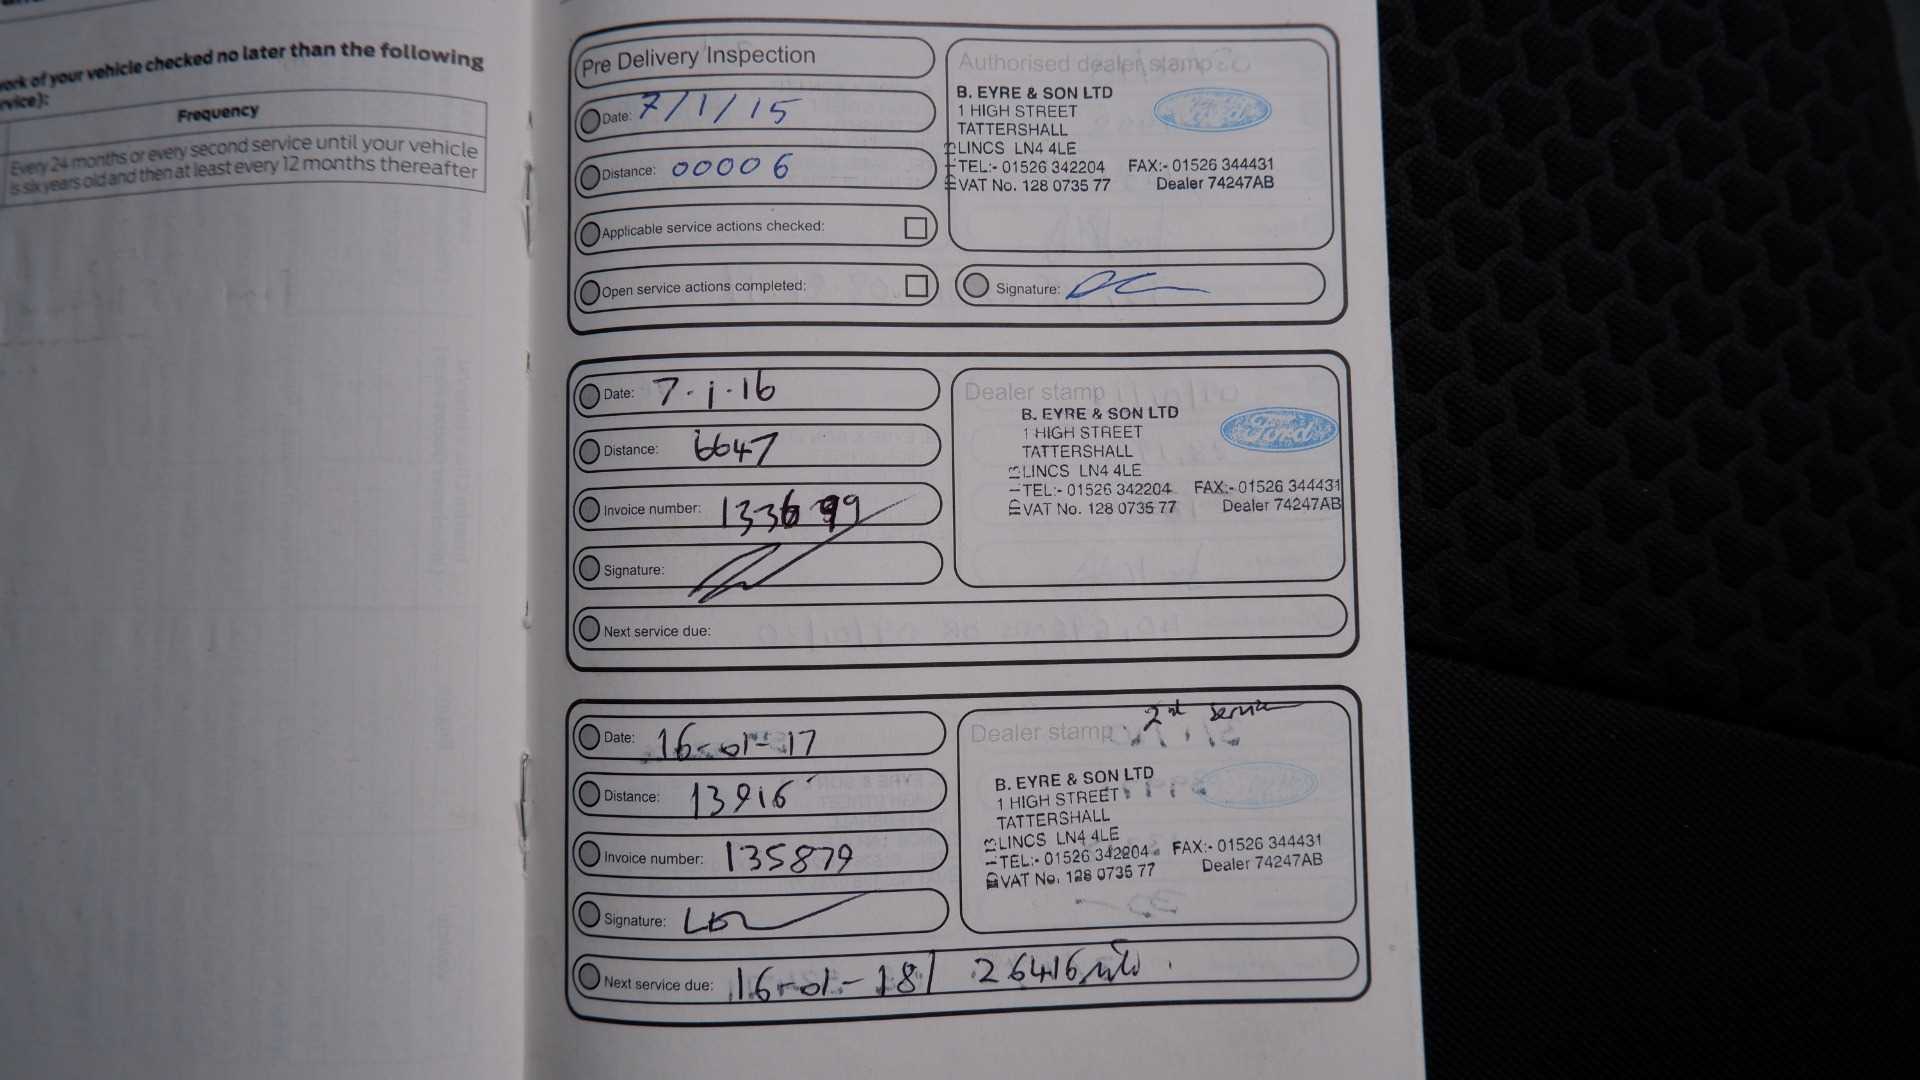 work of your vehicle checked no later than the following
Frequency
Every 24 months or every second service until your vehicle
is six years old and then at least every 12 months thereafter
Pre Delivery Inspection
Date: 7/1/15
Distance: 00006
Applicable service actions checked:
Open service actions completed:
Authorised dealer stamp
B. EYRE & SON LTD
1 HIGH STREET
TATTERSHALL
LINCS LN4 4LE
TEL:- 01526 342204 FAX:- 01526 344431
VAT No. 128 0735 77 Dealer 74247AB
Signature:
Date: 7.1.16
Distance: 6647
Invoice number: 133699
Signature:
Next service due:
Dealer stamp
B. EYRE & SON LTD
Ford
1 HIGH STREET
TATTERSHALL
LINCS LN4 4LE
TEL:- 01526 342204 FAX:- 01526 344431
VAT No. 128 0735 77 Dealer 74247AB
Date: 16-01-17
Distance: 13916
Invoice number: 135879
Signature:
Next service due: 16-01-18/ 26416
Dealer stamp 2nd service
B. EYRE & SON LTD
1 HIGH STREET
TATTERSHALL
LINCS LN4 4LE
TEL:- 01526 342204 FAX:- 01526 344431
VAT No. 128 0735 77 Dealer 74247AB